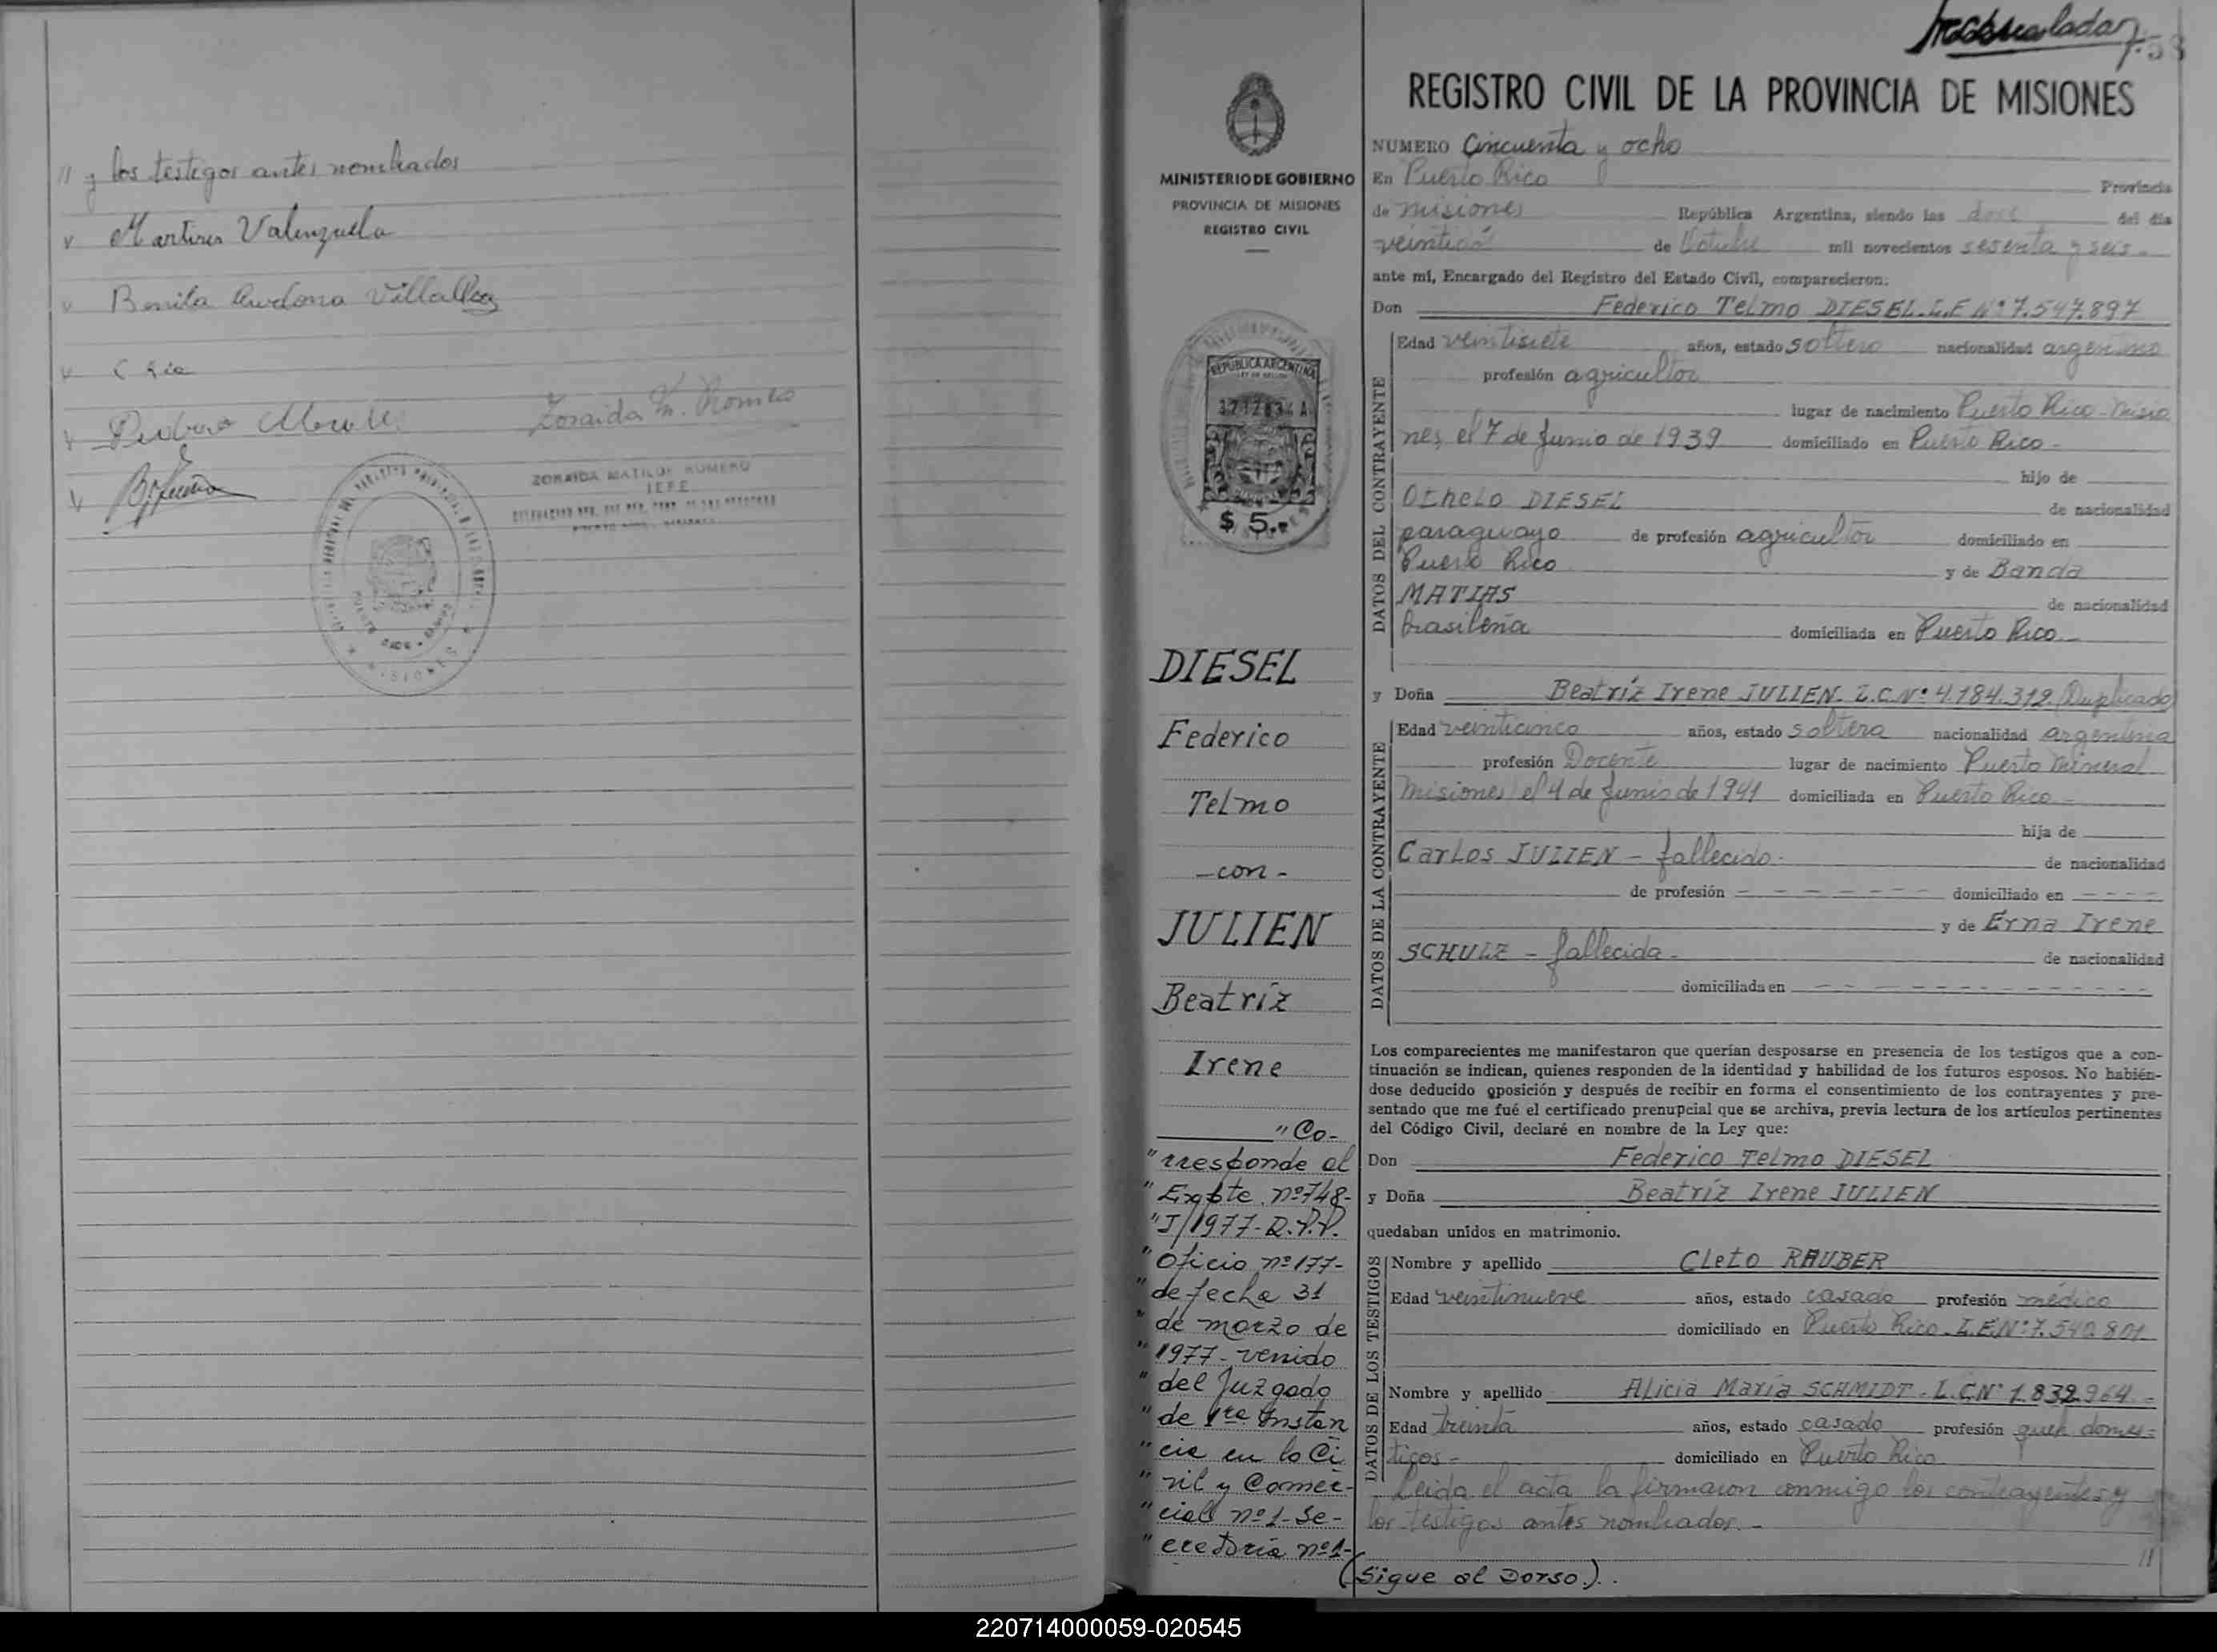 // y los testigos antes nombrados
v Martires Valenzuela
v Benita Villalba
v
v
Zoraida M. Romero
v
ZORAIDA MATILDE ROMERO
JEFE
7:58
REGISTRO CIVIL DE LA PROVINCIA DE MISIONES
MINISTERIO DE GOBIERNO
PROVINCIA DE MISIONES
REGISTRO CIVIL
REPUBLICA ARGENTINA
$ 5.-
DIESEL
Federico
Telmo
-con-
JULIEN
Beatríz
Irene
"Co-
"rresponde al
"Expte. nº748-
"J/1977-R.P.P.
"Oficio nº177-
"de fecha 31
"de marzo de
"1977-venido
"del Juzgado
"de 1ra Instan
"cia en lo Ci
"vil y Comer-
"cial nº1-Se-
"cretaria nº1-
(Sigue al Dorso).
NUMERO Cincuenta y ocho
En Puerto Rico Provincia
de Misiones República Argentina, siendo las doce del día
veintidós de Octubre mil novecientos sesenta y seis-
ante mí, Encargado del Registro del Estado Civil, comparecieron:
Don Federico Telmo DIESEL-L.E Nº 7.547.897
DATOS DEL CONTRAYENTE
Edad veintisiete años, estado soltero nacionalidad argentino
profesión agricultor
lugar de nacimiento Puerto Rico-Misio
nes, el 7 de Junio de 1939 domiciliado en Puerto Rico-
hijo de
Othelo DIESEL de nacionalidad
paraguayo de profesión agricultor domiciliado en
Puerto Rico y de Banda
MATIAS de nacionalidad
brasileña domiciliada en Puerto Rico-
y Doña Beatríz Irene JULIEN-L.C.Nº 4.184.312.(Duplicado)
DATOS DE LA CONTRAYENTE
Edad veinticinco años, estado soltera nacionalidad argentina
profesión Docente lugar de nacimiento Puerto Mineral
Misiones el 4 de Junio de 1941 domiciliada en Puerto Rico-
hija de
Carlos JULIEN - fallecido- de nacionalidad
de profesión - - - - - - - domiciliado en - - - -
y de Erna Irene
SCHULZ - fallecida- de nacionalidad
domiciliada en - - - - - - - - - - -
Los comparecientes me manifestaron que querían desposarse en presencia de los testigos que a con-
tinuación se indican, quienes responden de la identidad y habilidad de los futuros esposos. No habién-
dose deducido oposición y después de recibir en forma el consentimiento de los contrayentes y pre-
sentado que me fué el certificado prenupcial que se archiva, previa lectura de los artículos pertinentes
del Código Civil, declaré en nombre de la Ley que:
Don Federico Telmo DIESEL
y Doña Beatríz Irene JULIEN
quedaban unidos en matrimonio.
DATOS DE LOS TESTIGOS
Nombre y apellido Cleto RAUBER
Edad veintinueve años, estado casado profesión médico
domiciliado en Puerto Rico-L.E.Nº:7.540.801
Nombre y apellido Alicia María SCHMIDT-L.C.Nº 1.832.964-
Edad treinta años, estado casado profesión queh. domés-
ticos- domiciliado en Puerto Rico
Leida el acta la firmaron conmigo los contrayentes y
los testigos antes nombrados.-
//
220714000059-020545